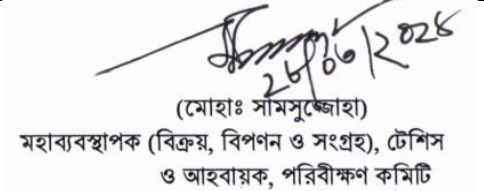 ২৬/০৬/২০২৪
(মোহাঃ সামসুজ্জোহা)
মহাব্যবস্থাপক (বিক্রয়, বিপণন ও সংগ্রহ), টেশিস
ও আহবায়ক, পরিবীক্ষণ কমিটি